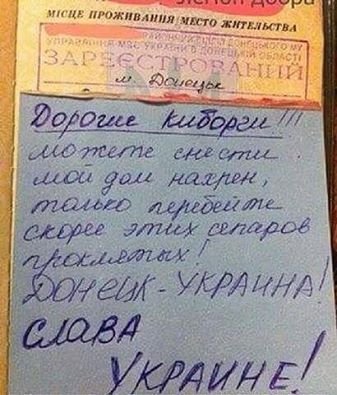 Легион добра
МІСЦЕ ПРОЖИВАННЯ МЕСТО ЖИТЕЛЬСТВА
УПРАВЛІННЯ МВС УКРАЇНИ В ДОНЕЦЬКІЙ ОБЛАСТІ
ЗАРЕЄСТРОВАНИЙ
м. Донецьк
Дорогие киборги!!!
можете снести
мой дом нахрен,
только перебейте
скорее этих сепаров
проклятых!
ДОНЕЦК - УКРАИНА!
СЛАВА
УКРАИНЕ!